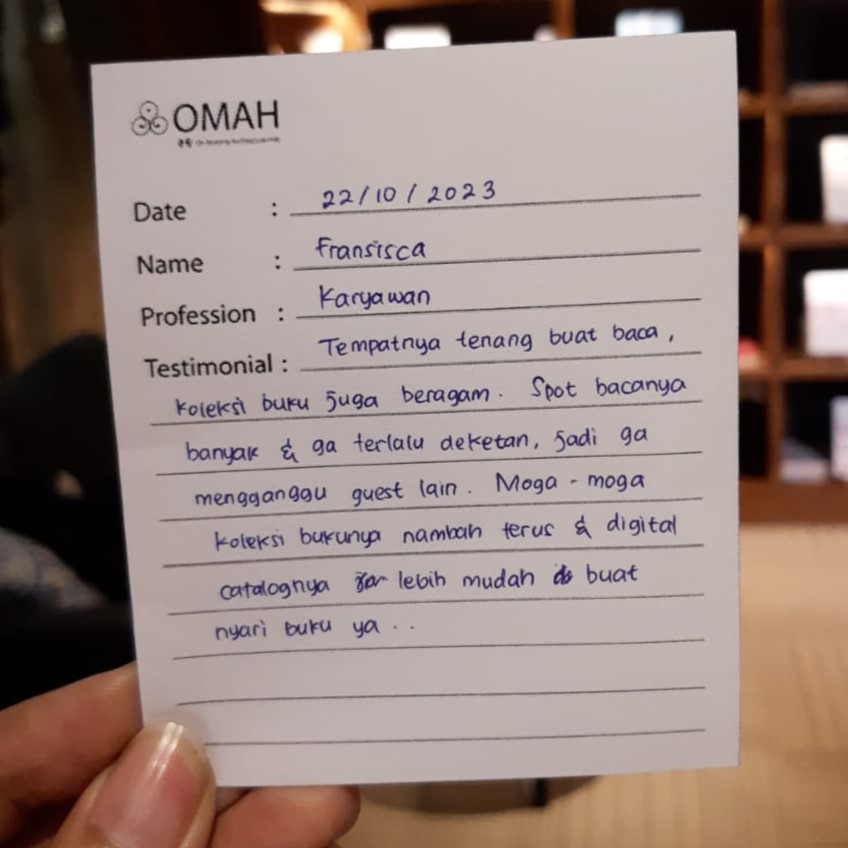 OMAH
Date : 22/10/2023
Name : Fransisca
Profession : Karyawan
Testimonial : Tempatnya tenang buat baca,
koleksi buku juga beragam. Spot bacanya
banyak & ga terlalu deketan, jadi ga
mengganggu guest lain. Moga-moga
koleksi bukunya nambah terus & digital
catalognya lebih mudah buat
nyari buku ya..